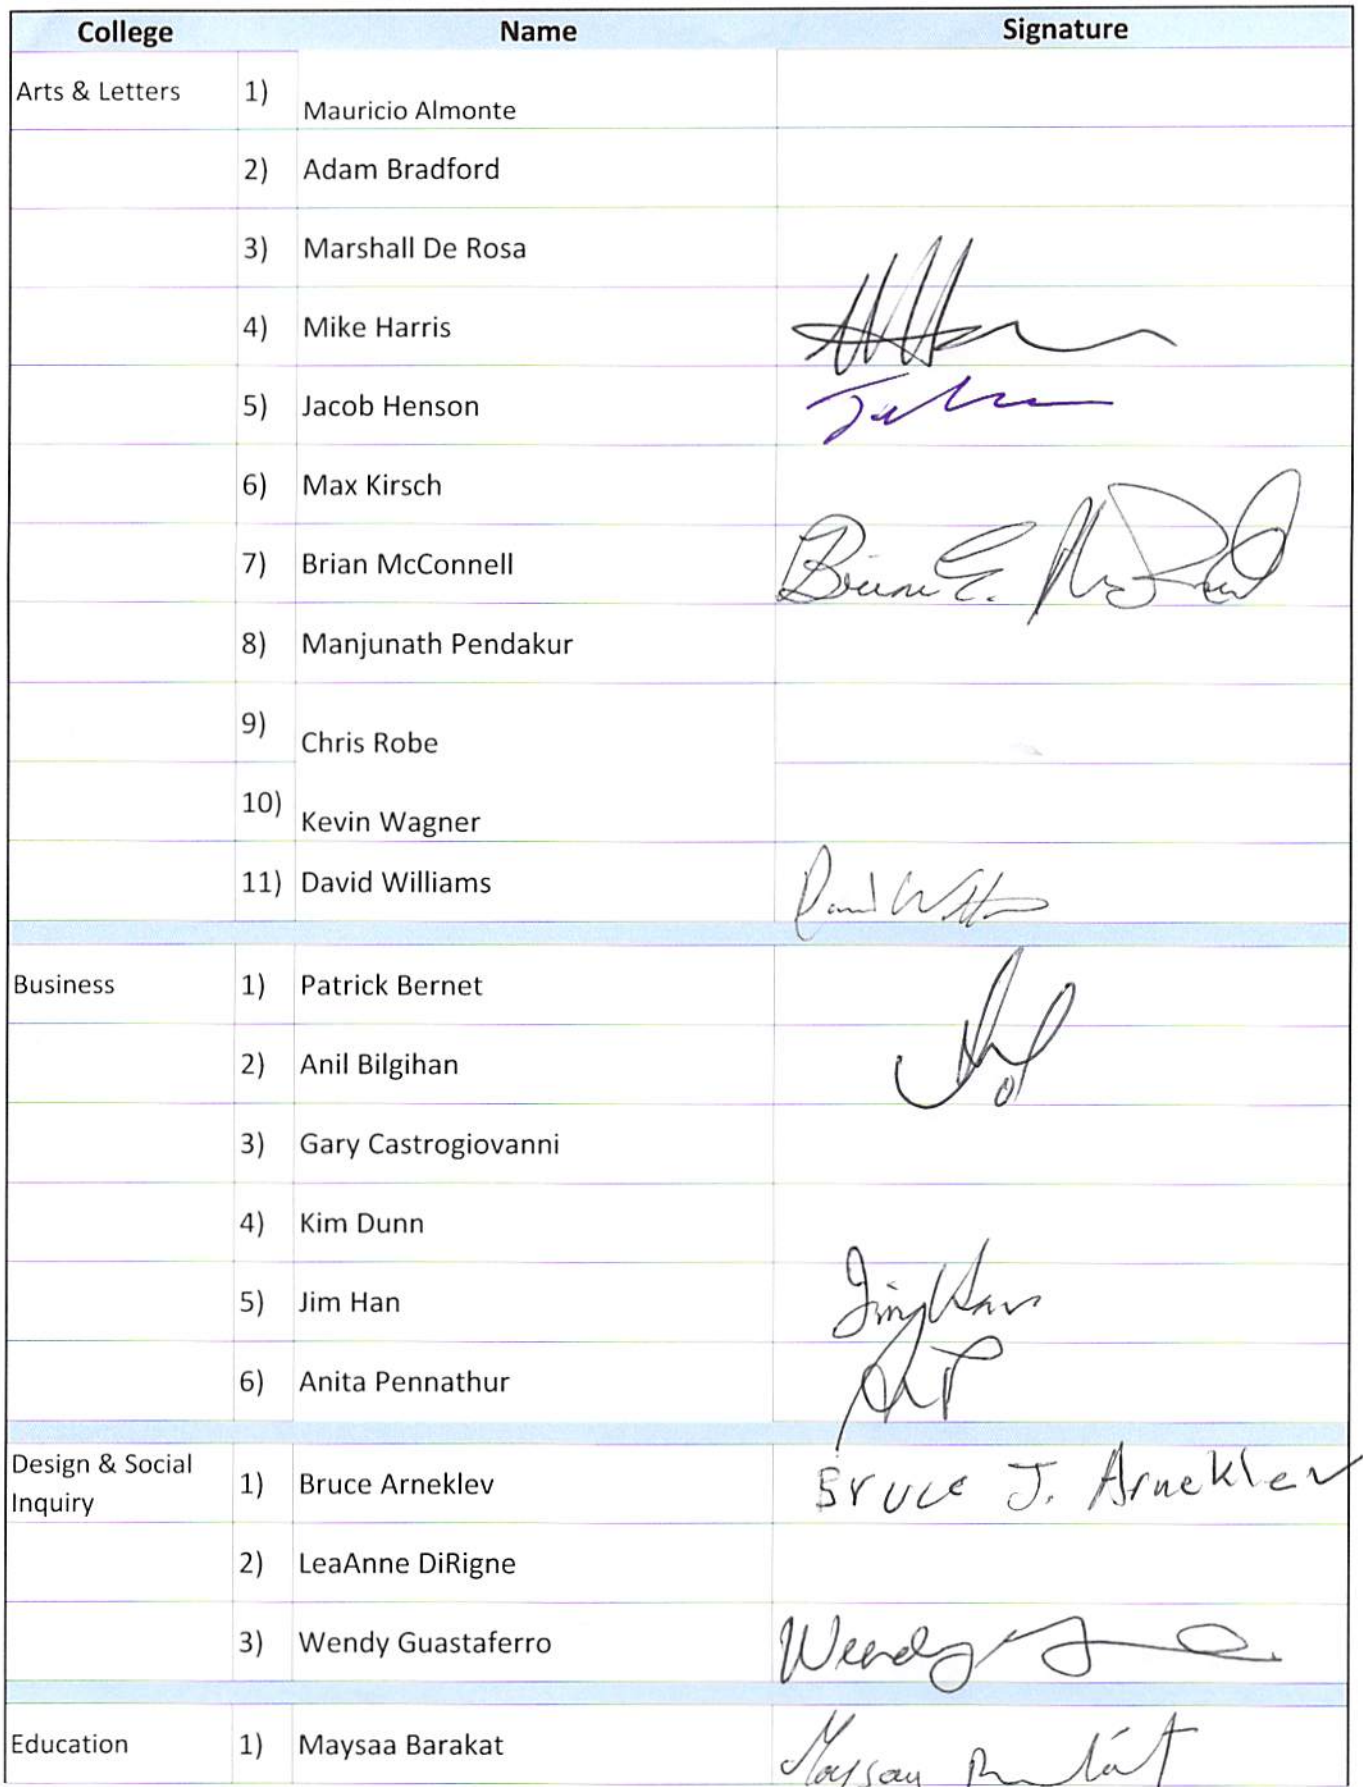 College Name Signature
Arts & Letters 1) Mauricio Almonte
2) Adam Bradford
3) Marshall De Rosa
4) Mike Harris
5) Jacob Henson
6) Max Kirsch
7) Brian McConnell Brian E.
8) Manjunath Pendakur
9) Chris Robe
10) Kevin Wagner
11) David Williams David
Business 1) Patrick Bernet
2) Anil Bilgihan
3) Gary Castrogiovanni
4) Kim Dunn
5) Jim Han Jim Han
6) Anita Pennathur
Design & Social
Inquiry 1) Bruce Arneklev Bruce J. Arneklev
2) LeaAnne DiRigne
3) Wendy Guastaferro Wendy
Education 1) Maysaa Barakat Maysaa Barakat